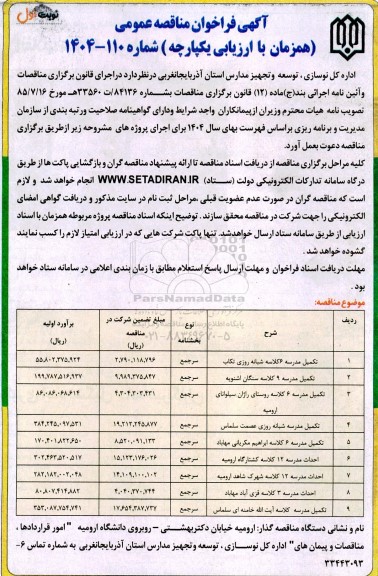 نوبت اول
آگهی فراخوان مناقصه عمومی
(همزمان با ارزیابی یکپارچه) شماره ۱۱۰-۱۴۰۴
اداره کل نوسازی ، توسعه وتجهیز مدارس استان آذربایجانغربی درنظردارد دراجرای قانون برگزاری مناقصات
وآئین نامه اجرائی بند(ج)ماده (۱۲) قانون برگزاری مناقصات بشماره ۸۴۱۳۶/ت ۳۳۵۶۰هـ مورخ ۸۵/۷/۱۶
تصویب نامه هیات محترم وزیران ازپیمانکاران واجد شرایط ودارای گواهینامه صلاحیت ورتبه بندی از سازمان
مدیریت و برنامه ریزی براساس فهرست بهای سال ۱۴۰۴ برای اجرای پروژه های مشروحه زیر ازطریق برگزاری
مناقصه دعوت بعمل آورد.
کلیه مراحل برگزاری مناقصه از دریافت اسناد مناقصه تا ارائه پیشنهاد مناقصه گران و بازگشایی پاکت ها از طریق
درگاه سامانه تدارکات الکترونیکی دولت (ستاد) WWW.SETADIRAN.IR انجام خواهد شد و لازم
است که مناقصه گران در صورت عدم عضویت قبلی ،مراحل ثبت نام در سایت مذکور و دریافت گواهی امضای
الکترونیکی را جهت شرکت در مناقصه محقق سازند . توضیح اینکه اسناد مناقصه پروژه مربوطه همزمان با اسناد
ارزیابی از طریق سامانه ستاد ارسال خواهدشد. تنها پاکت شرکت هایی که در ارزیابی امتیاز لازم را کسب نمایند
گشوده خواهد شد .
مهلت دریافت اسناد فراخوان و مهلت ارسال پاسخ استعلام مطابق با زمان بندی اعلامی در سامانه ستاد خواهد
بود .
موضوع مناقصه:
ردیف شرح نوع بخشنامه مبلغ تضمین شرکت در مناقصه (ریال) برآورد اولیه (ریال)
۱ تکمیل مدرسه ۶کلاسه شبانه روزی تکاب سرجمع ۲,۷۹۰,۱۱۸,۷۹۶ ۵۵,۸۰۲,۳۷۵,۹۲۴
۲ تکمیل مدرسه ۹ کلاسه سنگان اشنویه سرجمع ۹,۹۸۹,۳۷۵,۸۴۷ ۱۹۹,۷۸۷,۵۱۶,۹۳۷
۳ تکمیل مدرسه ۶ کلاسه روستای راژان سیلوانای ارومیه سرجمع ۴,۳۰۴,۳۰۳,۴۳۱ ۸۶,۰۸۶,۰۶۸,۶۱۴
۴ تکمیل مدرسه شبانه روزی عصمت سلماس سرجمع ۱۹,۲۱۲,۲۴۵,۸۷۷ ۳۸۴,۲۴۵,۰۹۷,۵۳۱
۵ تکمیل مدرسه ۶ کلاسه ابراهیم مکریانی مهاباد سرجمع ۸,۵۲۰,۰۹۱,۱۳۳ ۱۷۰,۴۰۱,۸۲۲,۶۵۰
۶ احداث مدرسه ۱۲ کلاسه کشتارگاه ارومیه سرجمع ۱۵,۱۲۳,۱۷۶,۰۲۶ ۳۰۲,۴۶۳,۵۲۰,۵۱۷
۷ احداث مدرسه ۱۲ کلاسه شهرک شاهد ارومیه سرجمع ۱۴,۱۰۹,۱۰۰,۱۰۲ ۲۸۲,۱۸۲,۰۰۲,۰۴۸
۸ احداث مدرسه ۳ کلاسه قزی آباد مهاباد سرجمع ۴,۰۴۰,۳۷۰,۷۴۴ ۸۰,۸۰۷,۴۱۴,۸۸۲
۹ تکمیل مدرسه کلاسه آیت الله خامنه ای سلماس سرجمع ۱۷,۶۵۴,۳۸۷,۷۳۷ ۳۵۳,۰۸۷,۷۵۴,۷۴۱
نام و نشانی دستگاه مناقصه گذار: ارومیه خیابان دکتربهشتی – روبروی دانشگاه ارومیه "امور قراردادها ،
مناقصات و پیمان های" اداره کل نوسـازی ، توسعه وتجهیز مدارس استان آذربایجانغربی به شماره تماس ۶-
۳۳۴۴۳۰۹۳